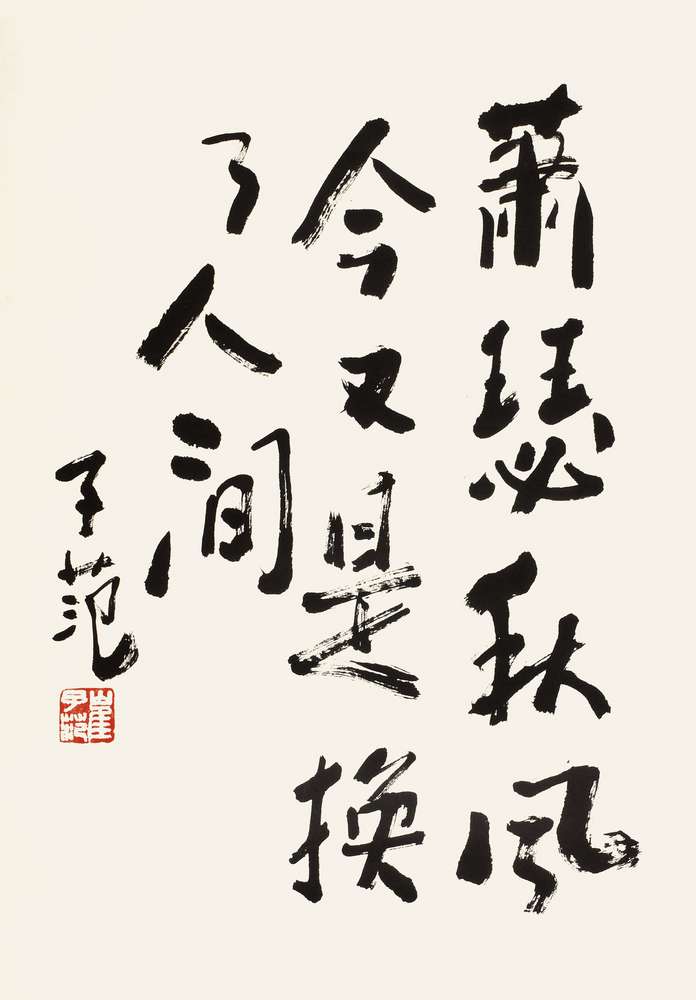 萧瑟秋风
今又是换
了人间
子范
崔子范